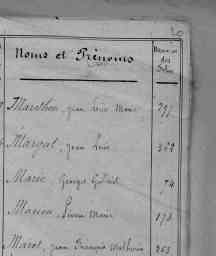 Noms et Prénoms
Numéros des
Marathon, Jean Louis Marie
Margat, Jean Louis 362
Marie Georges Gabriel 74
Marion, Pierre Marie 178
Marot, Jean François Mathurin 253